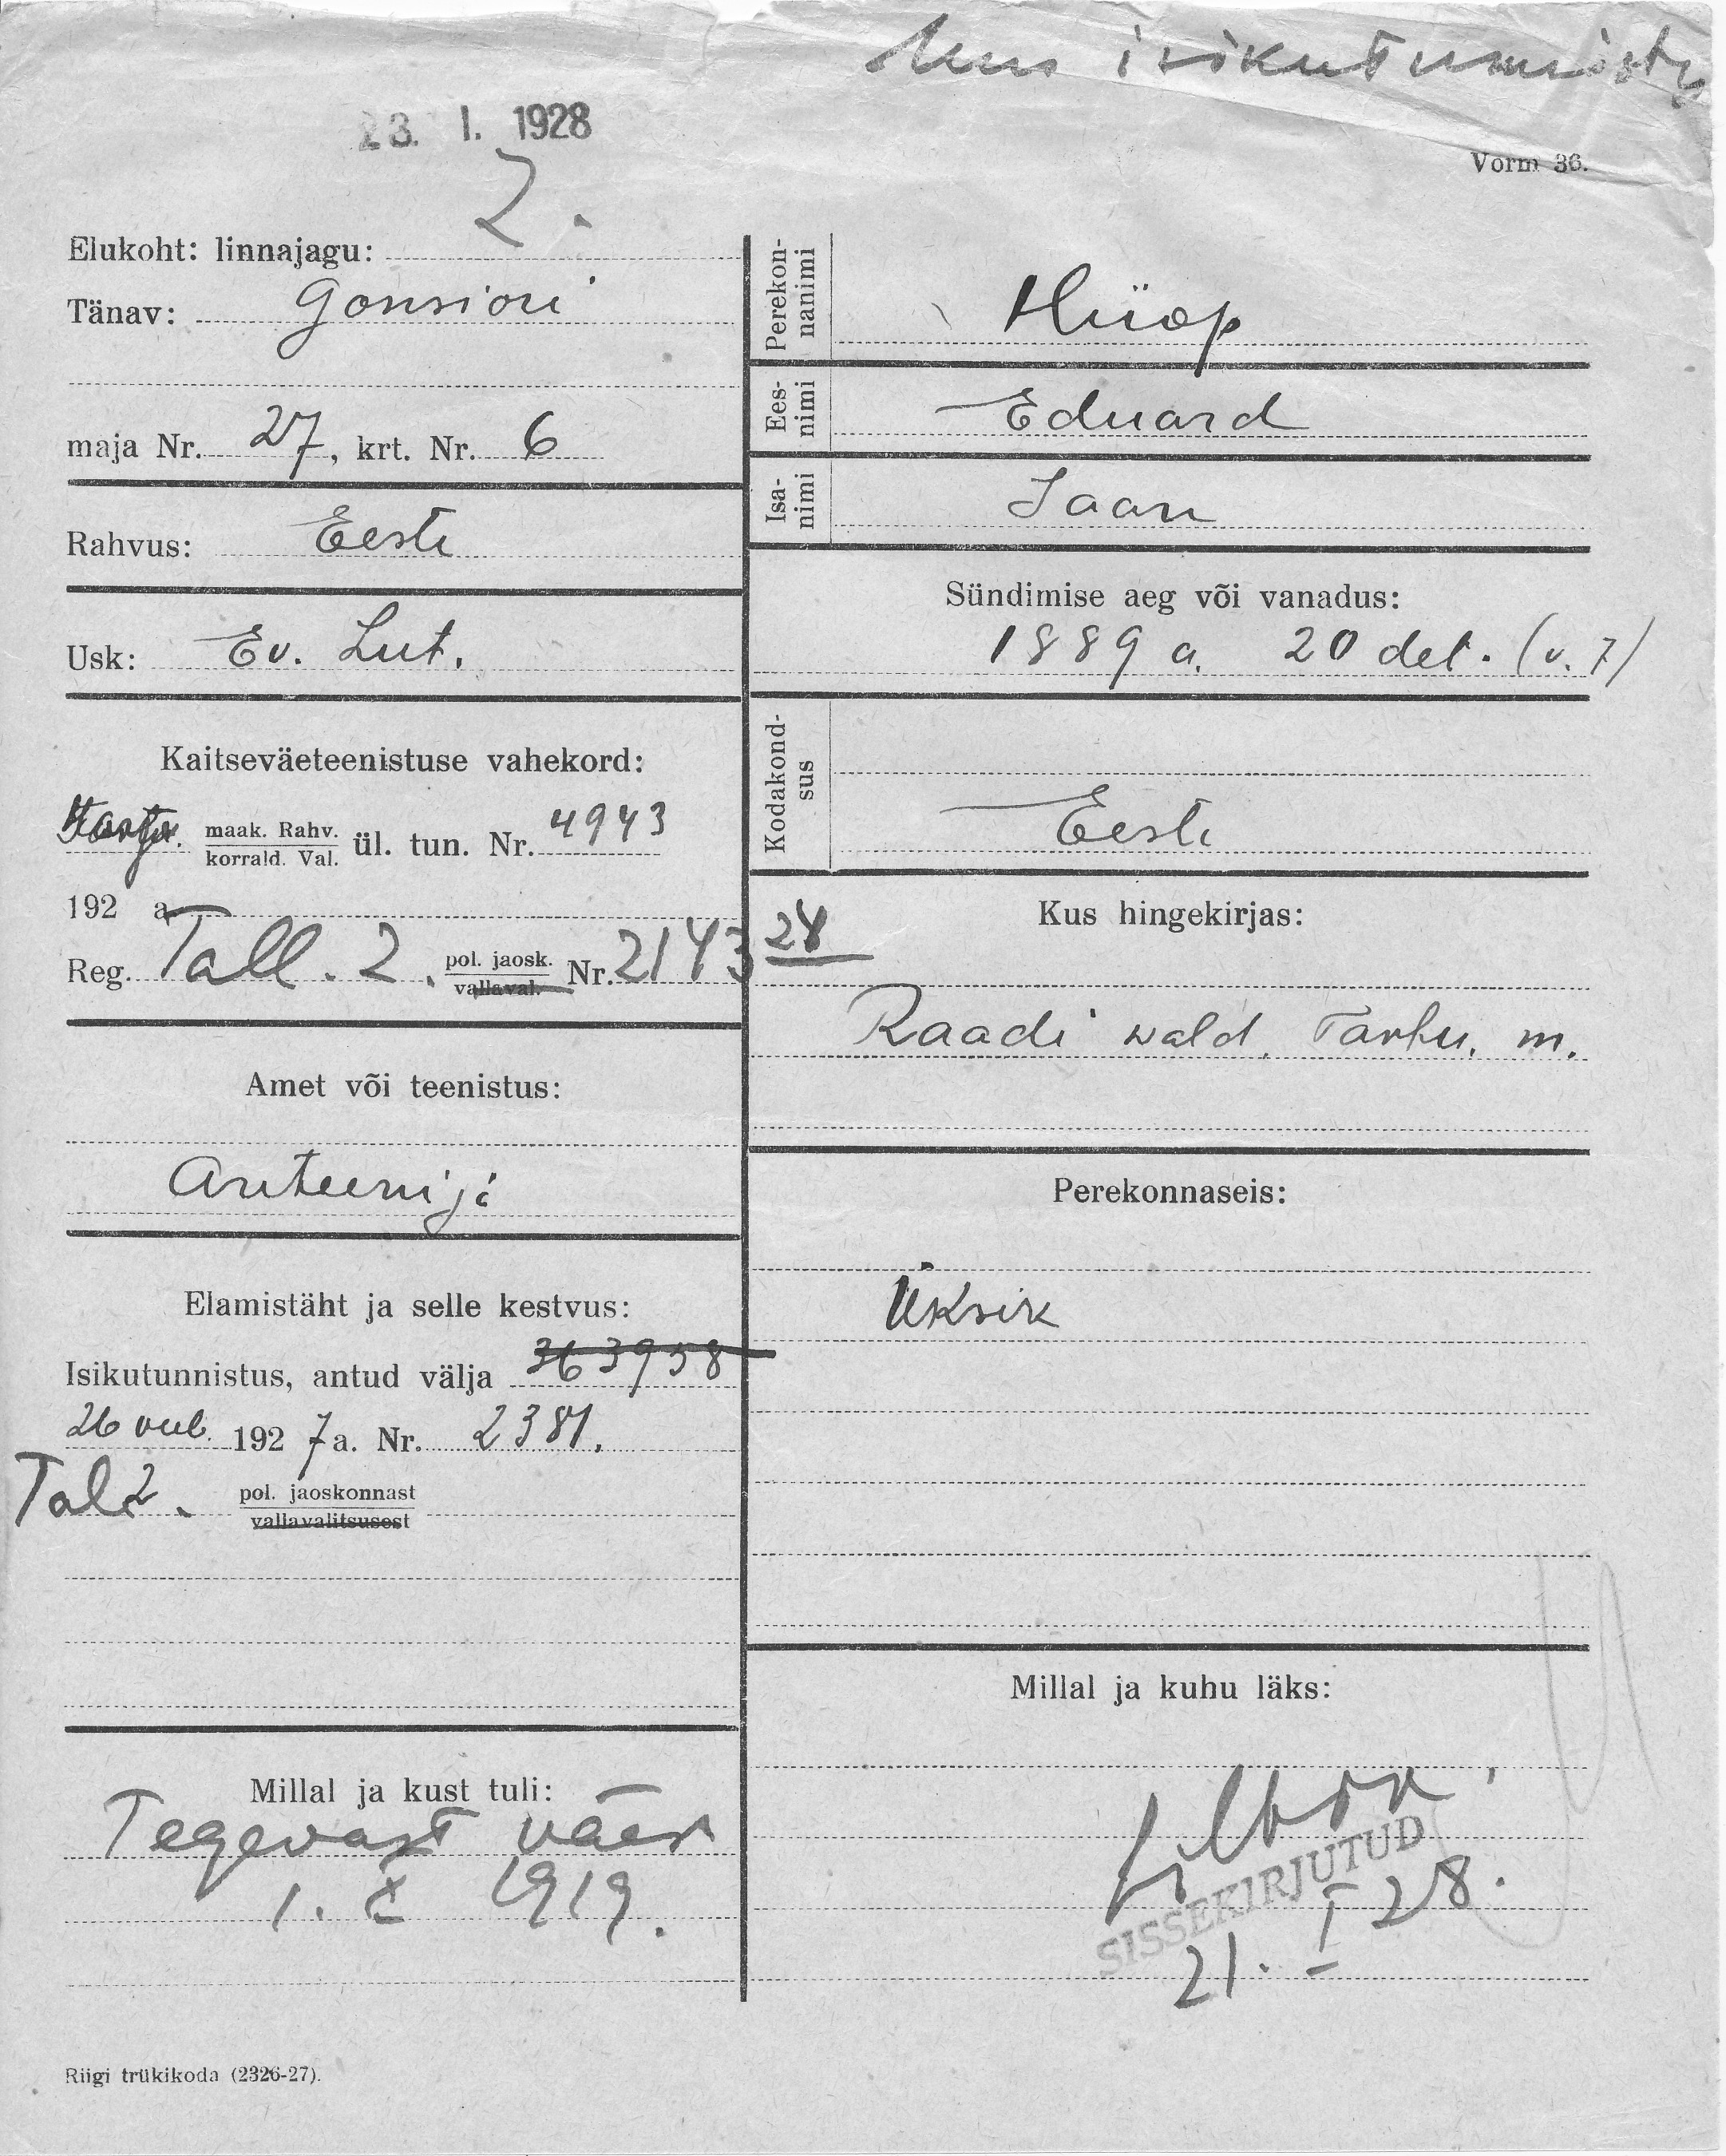 Uus isikutunnistus
23. I. 1928
Vorm 36.
2.
Elukoht: linnajagu:
Tänav: Gonsiori
maja Nr. 27, krt. Nr. 6
Rahvus: Eesti
Usk: Ev. Lut.
Kaitseväeteenistuse vahekord:
Tartu maak. Rahv.
korrald. Val. ül. tun. Nr. 4943
192 a.
Reg. Tall. 2. pol. jaosk.
vallaval. Nr. 2143 28
Amet või teenistus:
Ariteenija
Elamistäht ja selle kestvus:
Isikutunnistus, antud välja 363958
26 192 7 a. Nr. 2381.
Tal 2. pol. jaoskonnast
vallavalitsusest
Millal ja kust tuli:
Tegevast väest
1. X 1919.
Perekon-
nanimi
Hüop
Ees-
nimi
Eduard
Isa-
nimi
Jaan
Sündimise aeg või vanadus:
1889 a. 20 det. (v. 7)
Kodakond-
sus
Eesti
Kus hingekirjas:
Raadi wald, Tartu. m.
Perekonnaseis:
Üksik
Millal ja kuhu läks:
SISSEKIRJUTUD
21. I 28.
Riigi trükikoda (2326-27).